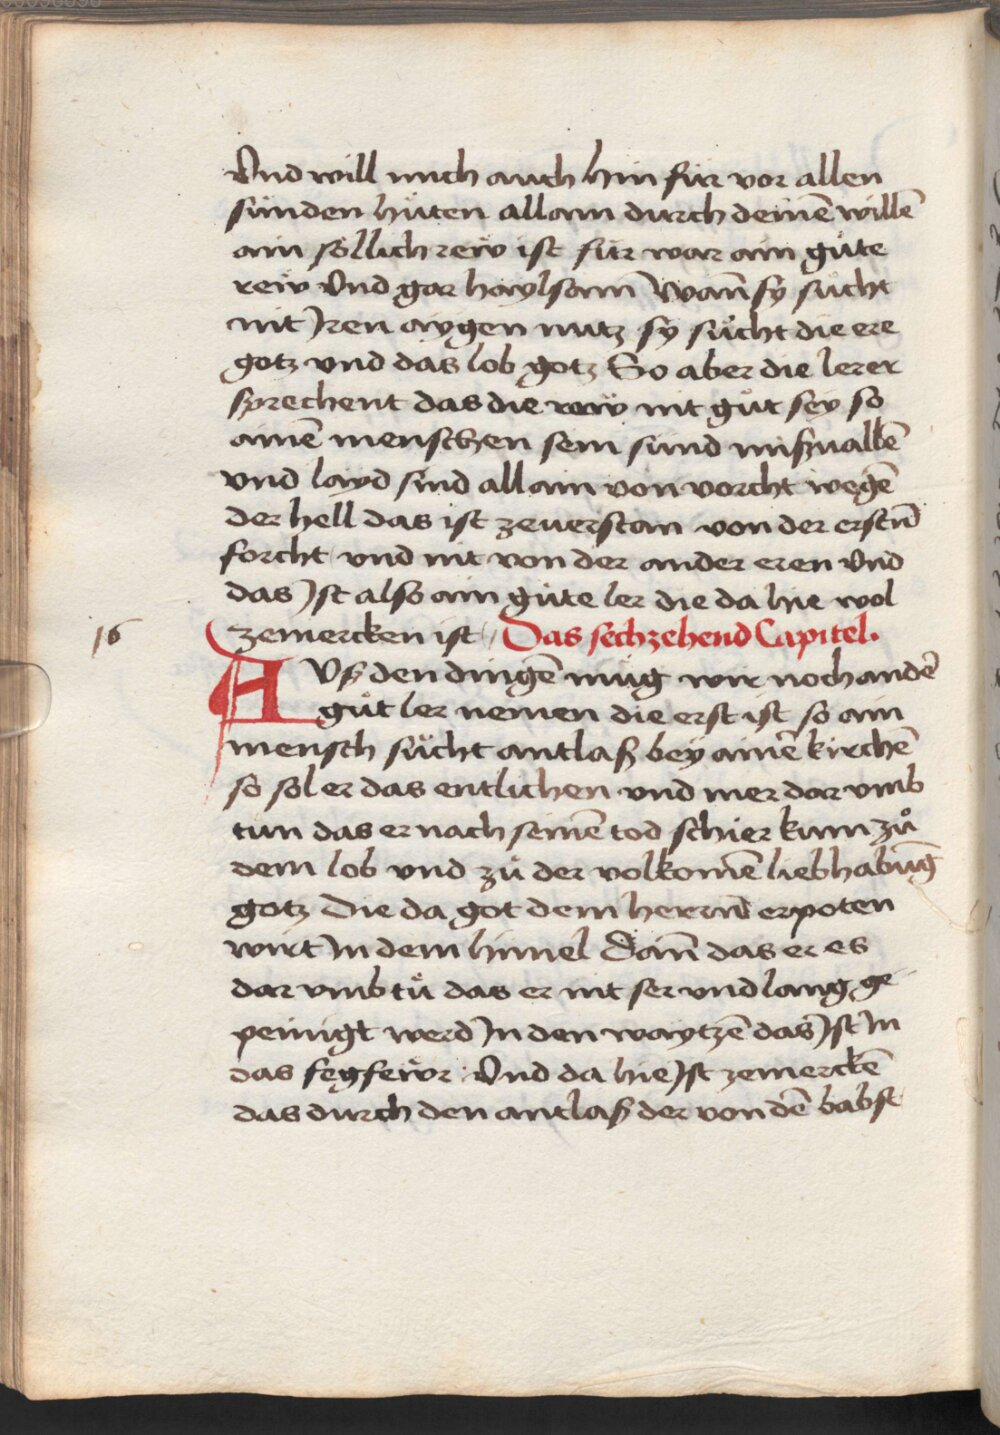 Vnd will mich auch hin für vor allen
sunden hüten allain durch deinē willē
ain söllich reẅ ist für war ain gůte
reẅ Vnd gar haylsam̄ Wan̄ sy sůcht
nit Jren aygen nutz sy sůcht die ere
gotz vnd das lob gotz So aber die lerer
sprechent das die reẅ nit gůt sey so
ainē menschen sein sünd mißuallē
vnd layd sind allain von vorcht wegē
der hell das ist zeuerstan von der erstn̄
forcht vnd nit von der ander eren Vnd
das Jst also ain gůte ler die da hie wol
zemercken ist Das sechzehend Capitel.
16
AVß den dingē müg wir noch andē
gůt ler nemen die erst ist so ain
mensch sůcht antlaß bey ainē kirchē
so sol er das entlichen vnd mer dar vmb
tun das er nach seinē tod schier kum zů
dem lob vnd zů der volkomē liebhabūg
gotz Die da got dem herrn̄ erpoten
wirt Jn dem himel Dan̄ das er es
dar vmb tů das er nit ser vnd lang ge
peinigt werd Jn den waytzē das Jst Jn
das fegfeẅr Vnd da hie Jst zemerckē
das durch den antlaß der von dē babst